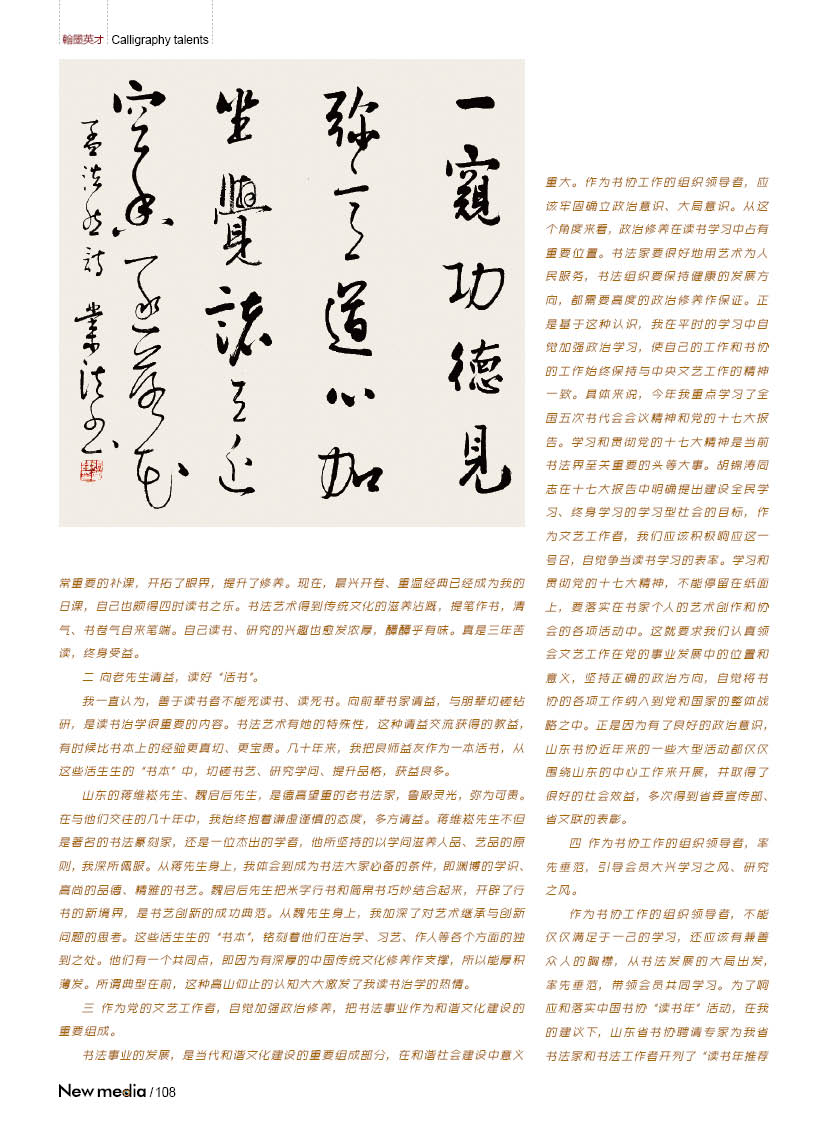 翰墨英才 Calligraphy talents
一窺功德見
弥益道心加
坐覺諸天近
空香逐落花
孟浩然詩 業法书
常重要的补课，开拓了眼界，提升了修养。现在，晨兴开卷、重温经典已经成为我的
日课，自己也颇得四时读书之乐。书法艺术得到传统文化的滋养沾溉，提笔作书，清
气、书卷气自来笔端。自己读书、研究的兴趣也愈发浓厚，醰醰乎有味。真是三年苦
读，终身受益。
二 向老先生请益，读好“活书”。
我一直认为，善于读书者不能死读书、读死书。向前辈书家请益，与朋辈切磋钻
研，是读书治学很重要的内容。书法艺术有她的特殊性，这种请益交流获得的教益，
有时候比书本上的经验更真切、更宝贵。几十年来，我把良师益友作为一本活书，从
这些活生生的“书本”中，切磋书艺、研究学问、提升品格，获益良多。
山东的蒋维崧先生、魏启后先生，是德高望重的老书法家，鲁殿灵光，弥为可贵。
在与他们交往的几十年中，我始终抱着谦虚谨慎的态度，多方请益。蒋维崧先生不但
是著名的书法篆刻家，还是一位杰出的学者，他所坚持的以学问滋养人品、艺品的原
则，我深所佩服。从蒋先生身上，我体会到成为书法大家必备的条件，即渊博的学识、
高尚的品德、精雅的书艺。魏启后先生把米字行书和简帛书巧妙结合起来，开辟了行
书的新境界，是书艺创新的成功典范。从魏先生身上，我加深了对艺术继承与创新
问题的思考。这些活生生的“书本”，铭刻着他们在治学、习艺、作人等各个方面的独
到之处。他们有一个共同点，即因为有深厚的中国传统文化修养作支撑，所以能厚积
薄发。所谓典型在前，这种高山仰止的认知大大激发了我读书治学的热情。
三 作为党的文艺工作者，自觉加强政治修养，把书法事业作为和谐文化建设的
重要组成。
书法事业的发展，是当代和谐文化建设的重要组成部分，在和谐社会建设中意义
重大。作为书协工作的组织领导者，应
该牢固确立政治意识、大局意识。从这
个角度来看，政治修养在读书学习中占有
重要位置。书法家要很好地用艺术为人
民服务，书法组织要保持健康的发展方
向，都需要高度的政治修养作保证。正
是基于这种认识，我在平时的学习中自
觉加强政治学习，使自己的工作和书协
的工作始终保持与中央文艺工作的精神
一致。具体来说，今年我重点学习了全
国五次书代会会议精神和党的十七大报
告。学习和贯彻党的十七大精神是当前
书法界至关重要的头等大事。胡锦涛同
志在十七大报告中明确提出建设全民学
习、终身学习的学习型社会的目标，作
为文艺工作者，我们应该积极响应这一
号召，自觉争当读书学习的表率。学习和
贯彻党的十七大精神，不能停留在纸面
上，要落实在书家个人的艺术创作和协
会的各项活动中。这就要求我们认真领
会文艺工作在党的事业发展中的位置和
意义，坚持正确的政治方向，自觉将书
协的各项工作纳入到党和国家的整体战
略之中。正是因为有了良好的政治意识，
山东书协近年来的一些大型活动都仅仅
围绕山东的中心工作来开展，并取得了
很好的社会效益，多次得到省委宣传部、
省文联的表彰。
四 作为书协工作的组织领导者，率
先垂范，引导会员大兴学习之风、研究
之风。
作为书协工作的组织领导者，不能
仅仅满足于一己的学习，还应该有兼善
众人的胸襟，从书法发展的大局出发，
率先垂范，带领会员共同学习。为了响
应和落实中国书协“读书年”活动，在我
的建议下，山东省书协聘请专家为我省
书法家和书法工作者开列了“读书年推荐
New media / 108